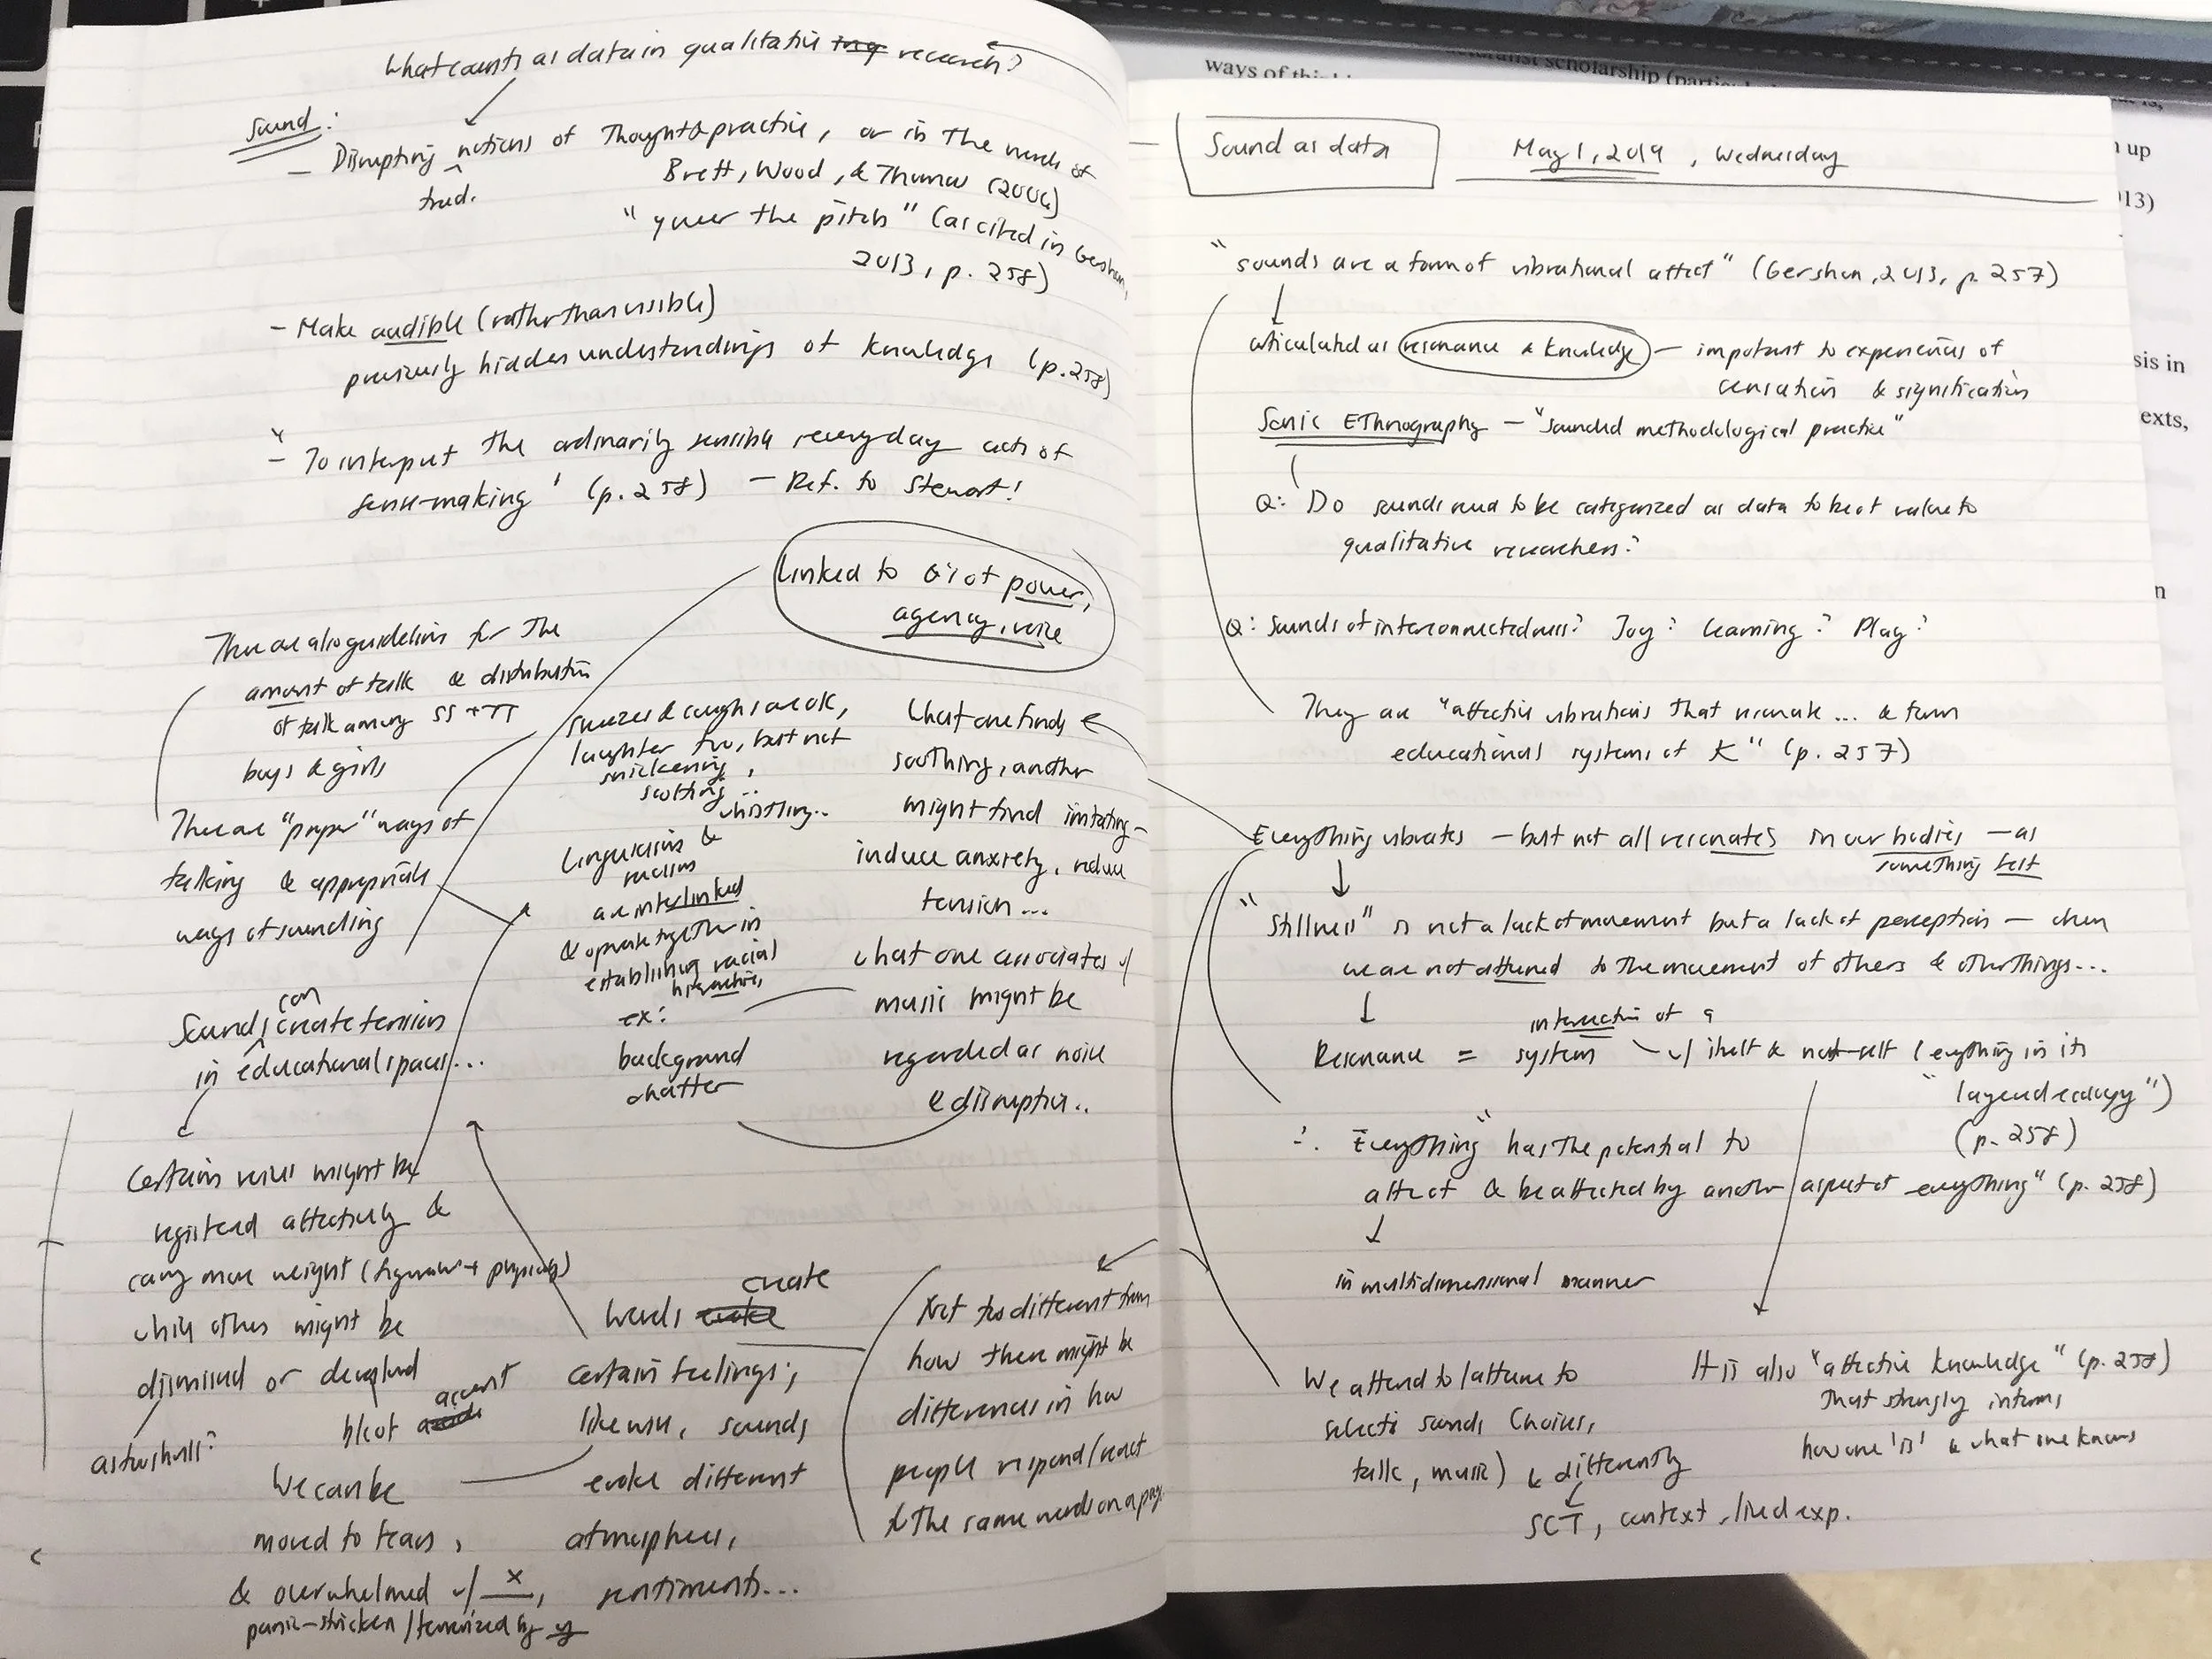 What counts as data in qualitative research?
Sound:
- Disrupting notions of Thought & practice, or in the words of
trad.
Brett, Wood, & Thomas (2006)
"queer the pitch" (as cited in Gershon,
2013, p. 258)
- Make audible (rather than visible)
previously hidden understandings of knowledge (p. 258)
- "To interpret the ordinarily sensible everyday acts of
sense-making" (p. 258) - Ref. to Stewart!
Linked to Q's of power,
agency, voice
There are also guidelines for the
amount of talk & distribution
of talk among SS + TT
boys & girls
There are "proper" ways of
talking & appropriate
ways of sounding
sneezes & coughs are ok,
laughter too, but not
snickering,
scoffing,
whistling..
Linguicism &
racism
are interlinked
& operate together in
establishing racial
hierarchies,
ex:
background
chatter
What one finds
soothing, another
might find irritating -
induce anxiety, reduce
tension...
what one associates w/
music might be
regarded as noise
& disruption..
can
Sounds create tension
in educational spaces...
Certain voices might be
registered affectively &
carry more weight ( + physically)
while others might be
dismissed or devalued
b/c of accent
as too shrill?
We can be
moved to tears,
& overwhelmed w/ x,
panic-stricken/terrorized by y
create
Words
certain feelings;
likewise, sounds
evoke different
atmospheres,
sentiments...
Not too different from
how there might be
differences in how
people respond/react
to the same words on a page.
Sound as data
May 1, 2019, Wednesday
"sounds are a form of vibrational affect" (Gershon, 2013, p. 257)
articulated as resonance & knowledge - important to experiences of
sensation & signification
Sonic Ethnography - "sounded methodological practice"
Q: Do sounds need to be categorized as data to be of value to
qualitative researchers?
Q: Sounds of interconnectedness? Joy? Learning? Play?
They are "affective vibrations that resonate ... & form
educational systems of K" (p. 257)
Everything vibrates - but not all resonates in our bodies - as
something felt
"Stillness" is not a lack of movement but a lack of perception - when
we are not attuned to the movement of others & other things...
interaction of a
Resonance = system w/ itself & not-self (everything in its
"layered ecology")
(p. 258)
∴ "Everything has the potential to
affect & be affected by another aspect of everything" (p. 258)
in multidimensional manner
We attend to/attune to
selective sounds (voices,
talk, music) & differently
SCT, context, lived exp.
It is also "affective knowledge" (p. 258)
that strongly informs
how one 'is' & what one knows
ways of
scholarship
up
13)
sis in
exts,
n